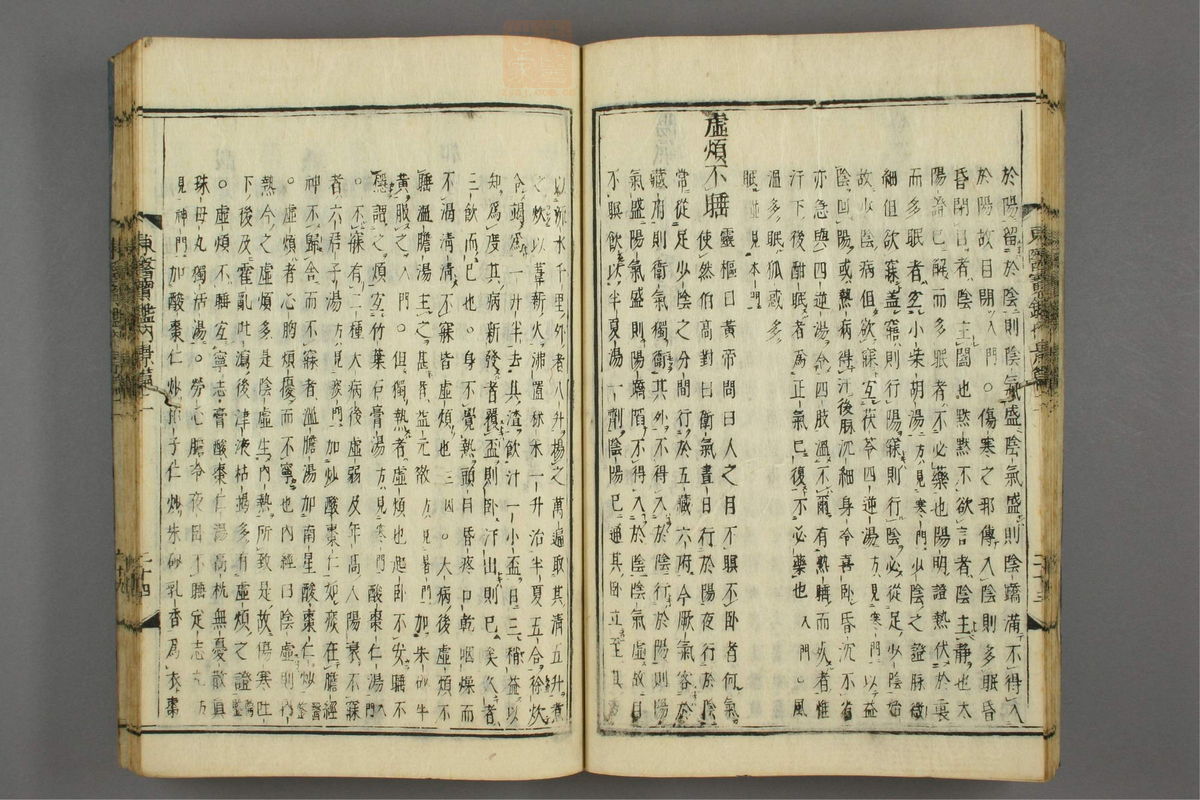 於陽留於陰則陰氣盛陰氣盛則陰蹻滿不得入
於陽故目閉入門○傷寒之邪傳入陰則多眠昏
昏閉目者陰主闔也默默不欲言者陰主靜也太
陽證已解而多眠者不必藥也陽明證熱伏於裏
而多眠者宜小柴胡湯方見寒門少陰之證脉微
細但欲寐盖寤則行陽寐則行陰必從足少陰始
故少陰病但欲寐宜茯苓四逆湯方見寒門以益
陰回陽或熱病得汗後脉沉細身冷喜臥昏沉不省
亦急與四逆湯令四肢溫不爾有熱睡而
汗下後酣眠者爲正氣已復不必藥也入門○風
溫多眠狐惑多
眠並見本門
虛煩不睡 靈樞曰黃帝問曰人之目不瞑不臥者何氣
使然伯高對曰衛氣晝日行於陽夜行於陰
常從足少陰之分間行於五藏六府今厥氣客於
藏府則衛氣獨衛其外不得入於陰行於陽則陽
氣盛陽氣盛則陽蹻陷不得入於陰陰氣虛故目
不眠飮以半夏湯一劑陰陽已通其臥立至其
以流水千里外者八升揚之萬遍取其淸五升煮
之炊以葦薪火沸置秫米一升治半夏五合徐炊
令竭爲一升半去其渣飮汁一小盃日三稍益以
知爲度其病新發者覆盃則臥汗出則已矣久者
三飮而已也○身不覺熱頭目昏疼口乾咽燥而
不渴淸淸不寐皆虛煩也三因○大病後虛煩不
睡溫膽湯主之甚者益元散方見暑門加朱砂牛
黃服之入門○但獨熱者虛煩也起臥不安睡不
穩謂之煩宜竹葉石膏湯方見寒門酸棗仁湯入門
○不寐有二種大病後虛弱及年高人陽衰不寐
者六君子湯方見痰門加炒酸棗仁如痰在膽經
神不歸舍而不寐者溫膽湯加南星酸棗仁炒醫鑑
○虛煩者心胸煩擾而不寧也內經曰陰虛則內
熱今之虛煩多是陰虛生內熱所致是故傷寒吐
下後及霍亂吐瀉後津液枯竭多有虛煩之證醫鑑
○虛煩不睡宜寧志膏酸棗仁湯高枕無憂散眞
珠母丸獨活湯○勞心膽冷夜臥不睡定志元方
見神門加酸棗仁炒栢子仁炒朱砂乳香爲衣棗
東醫寶鑑內景篇
二十三
東醫寶鑑內景篇
二十四